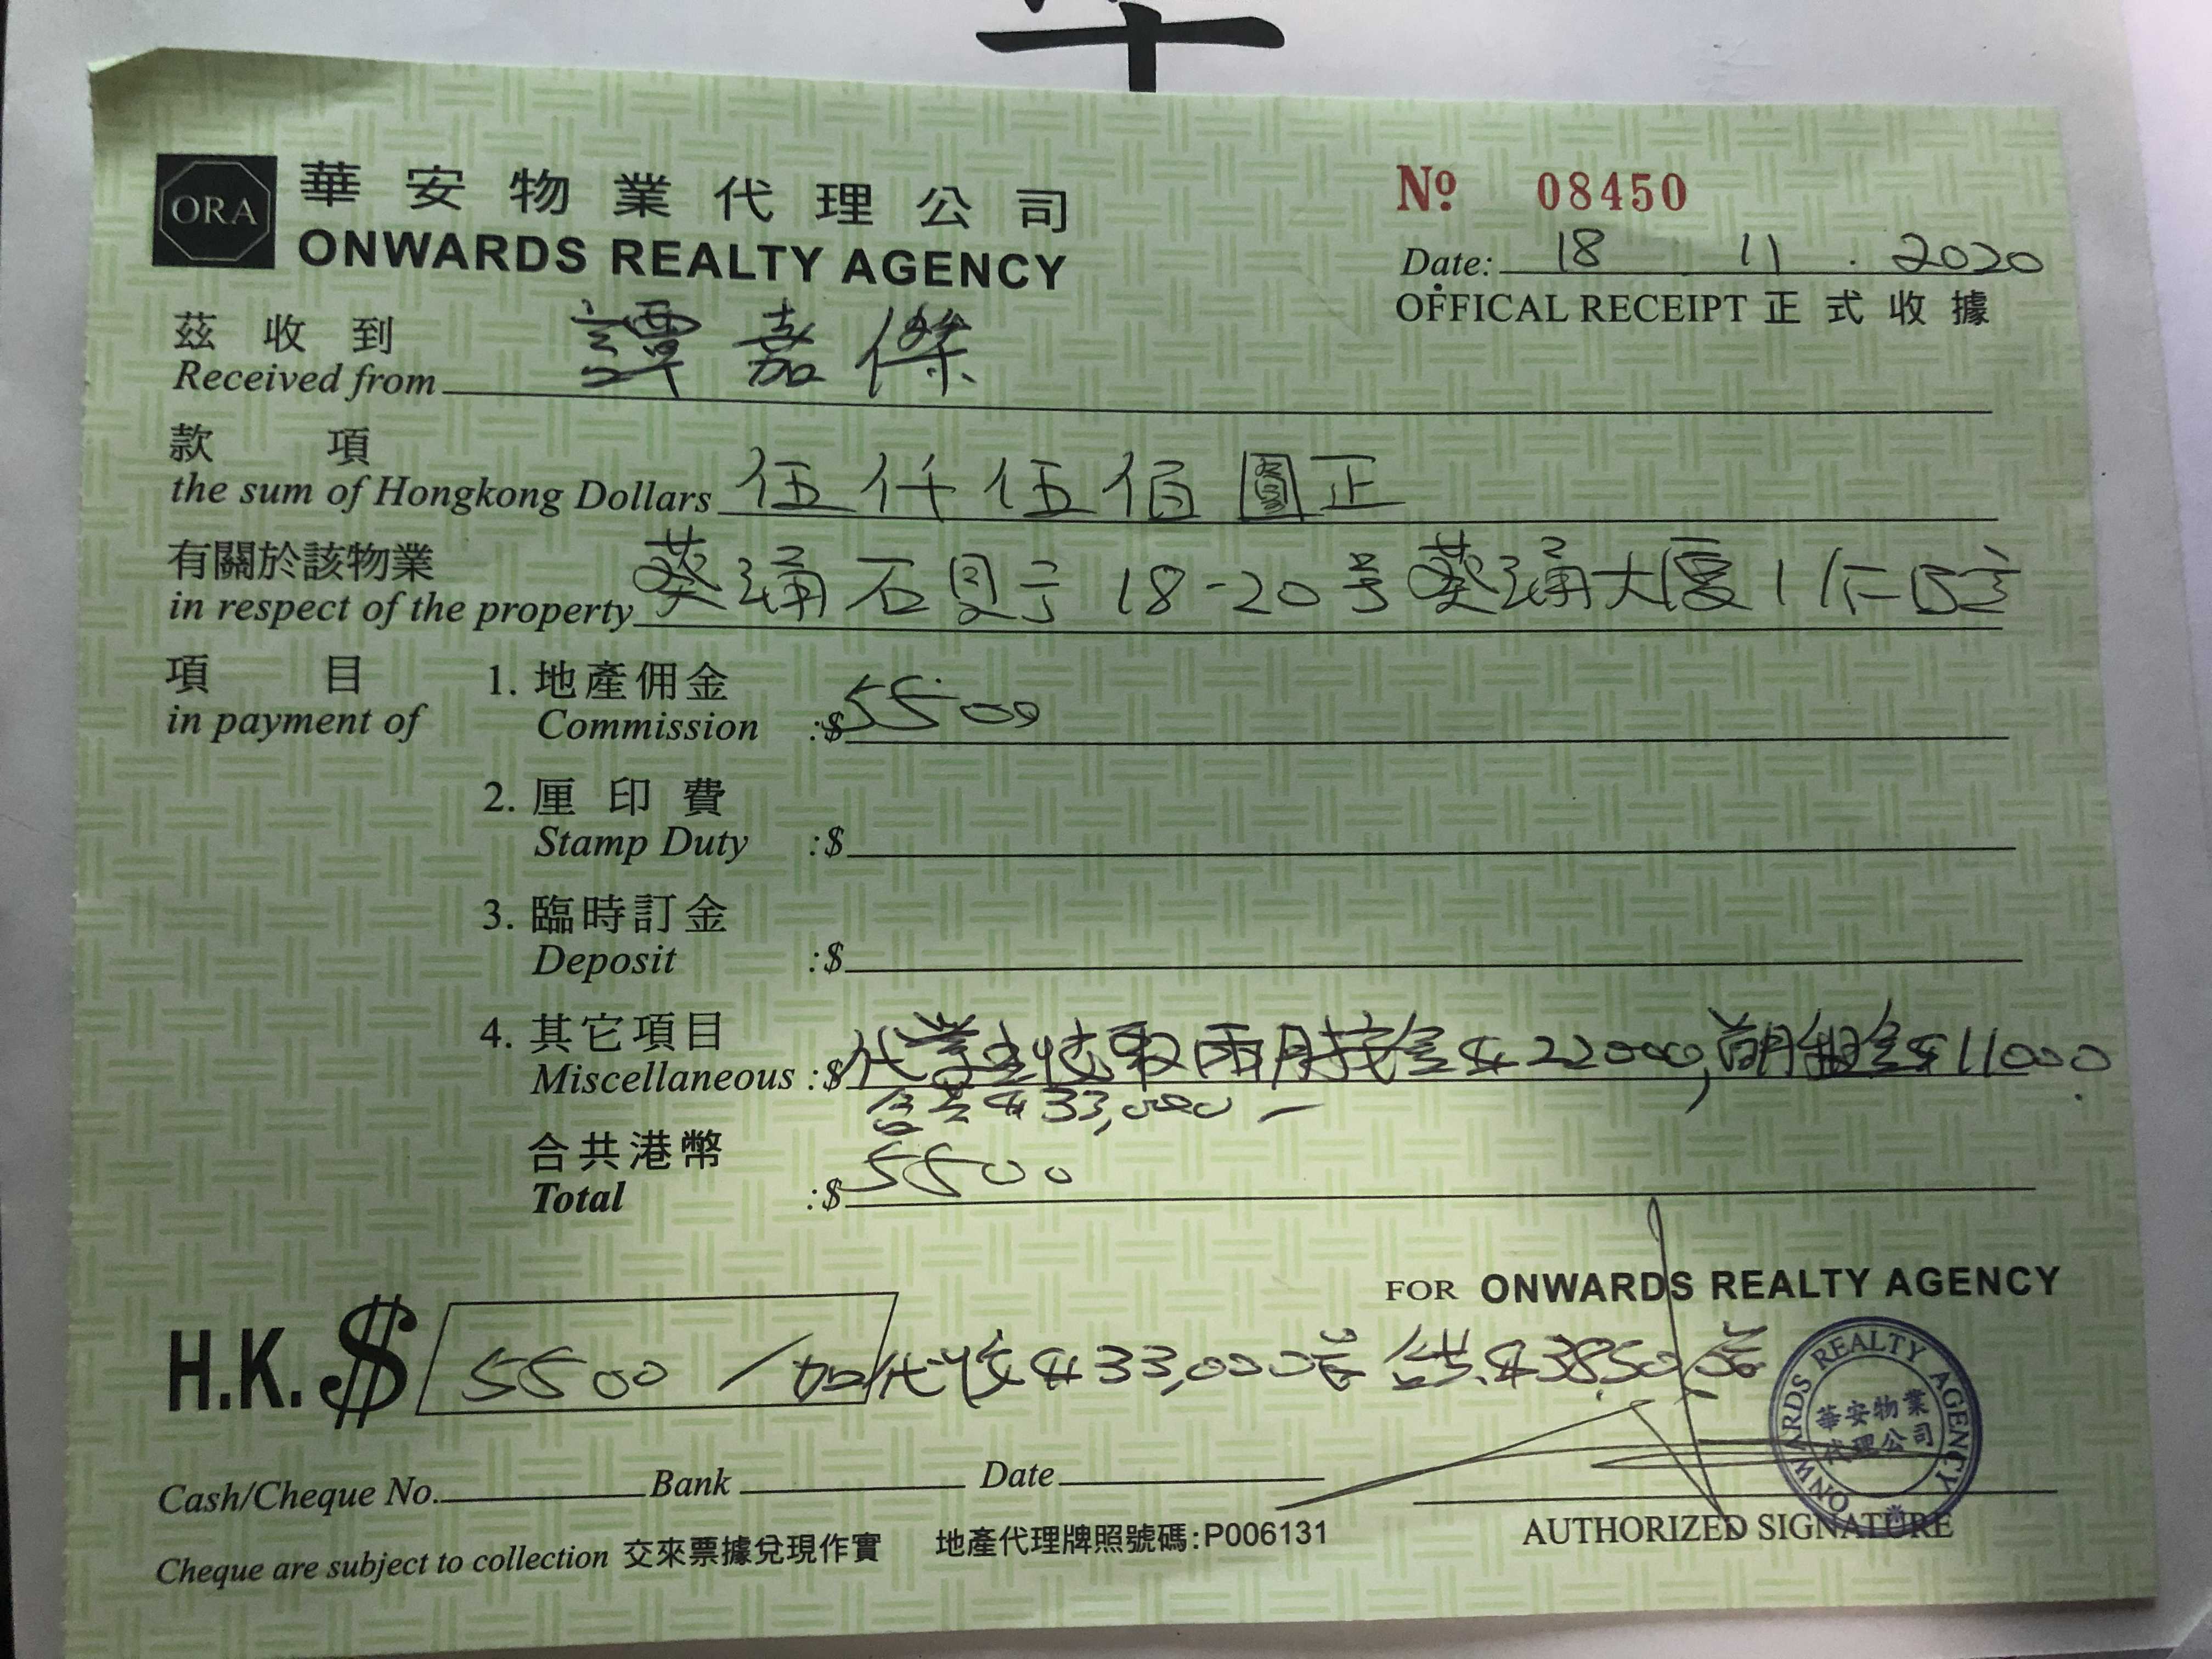 ORA
華安物業代理公司
ONWARDS REALTY AGENCY
№ 08450
Date: 18 11 . 2020
OFFICAL RECEIPT 正式收據
茲收到
Received from 譚嘉傑
款項
the sum of Hongkong Dollars 伍仟伍佰圓正
有關於該物業
in respect of the property 葵涌石 18-20号葵涌大厦11
項目
in payment of
1. 地產佣金
Commission :$ 5500
2. 厘印費
Stamp Duty :$
3. 臨時訂金
Deposit :$
4. 其它項目
Miscellaneous :$ 代業主收取兩月按金$22000,首月租金$11000
合共$33,000
合共港幣
Total :$ 5500
FOR ONWARDS REALTY AGENCY
H.K.$ 5500 / 加代收$33,000 $38500
ONWARDS REALTY AGENCY
華安物業
代理公司
Cash/Cheque No. Bank Date
AUTHORIZED SIGNATURE
Cheque are subject to collection 交來票據兌現作實 地產代理牌照號碼:P006131